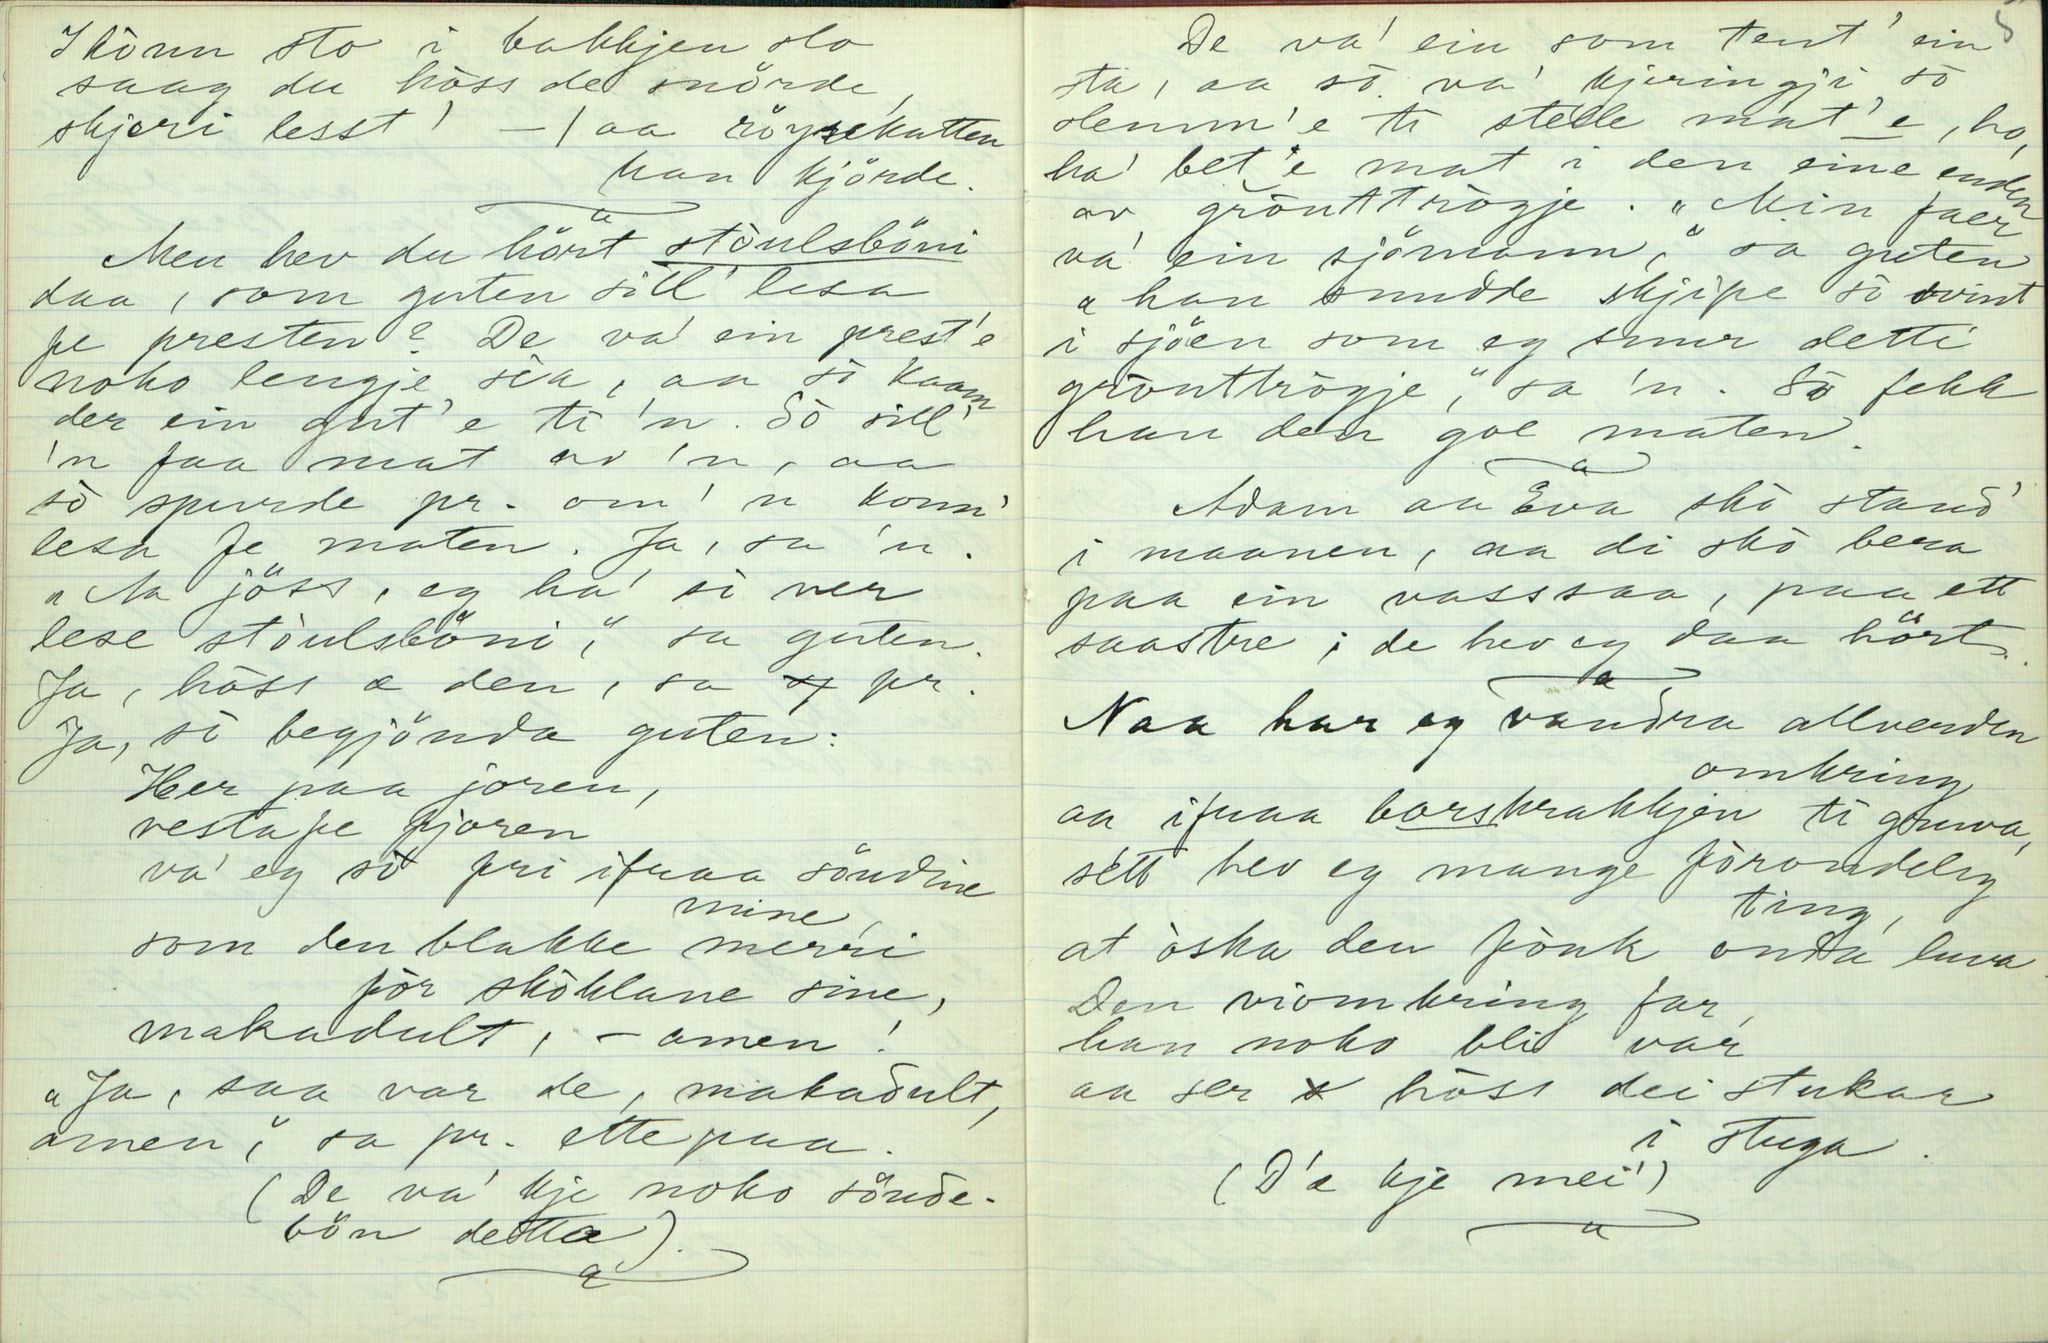 Ikònn sto i bakkjen slo
saag du hòss de snörde,
skjori lesst' – aa röysekatten
han kjörde.
Men hev du hört stòulsböni
daa, som guten sill' lesa
fe presten? De va' ein prest'e
noko lengje sèa, aa sò kaam
der ein gut'e ti 'n. Sò sill'
'n faa mat av 'n, aa
sò spurde pr. om 'n konn'
lesa fe maten. Ja, sa 'n.
"Aa jöss, eg ha' ei ver
lese stòulsböni," sa guten.
Ja, hòss æ den, sa pr.
Ja, sò begjönda guten:
Her paa joren,
vestafe fjoren
va' eg sò fri ifraa söndine
mine
som den blakke merri
fòr skòklane sine,
makadult, – amen!
"Ja, saa var de, makadult,
amen," sa pr. ettepaa.
(De va' kje noko sönde-
bön detta).
5
De va' ein som tent' ein
sta, aa sò va' kjeringji sò
slemm'e ti stelle mat'e, ho
ha' bet'e mat i den eine enden
av gròuttrògje. "Min faer
va' ein sjömann," sa guten
"han snudde skjipe sò svint
i sjöen som eg snur detti
gròuttrògje," sa 'n. Sò fekk
han den goe maten.
Adam aa Eva skò stand'
i maanen, aa di skò bera
paa ein vasssaa, paa ett
saastre; de hev eg daa hört.
Naa har eg vandra allverden
omkring
aa ifraa borskrakkjen ti gruva,
sètt hev eg mange fòrondelig
ting,
at òska den fònk onda luva.
Den viomkring far,
han noko bli var
aa ser hòss dei stukar
i stuga.
(D'æ kje mei')